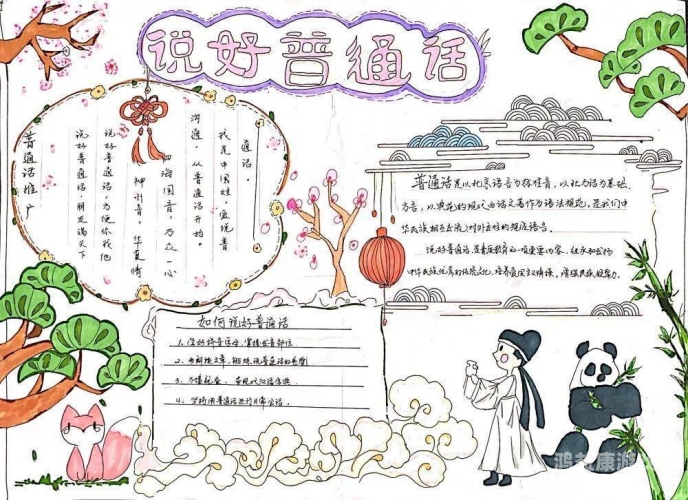 说好普通话
普通话推广
说好普通话 朋友遍天下
说好普通话 方便你我他
神州音,华夏情
四海同音,万众一心
沟通,从普通话开始。
我是中国娃,爱说普
通话。
普通话是以北京语音为标准音,以北方话为基础
方言,以典范的现代白话文著作为语法规范,是我们中
华民族相互交流以对外交往的规范语言。
说好普通话,是素质教育的一项重要内容,继承和发扬
中华民族优秀的传统文化,培养爱国主义情操,增强民族凝聚力。
如何说好普通话
1、学好拼音字母,掌握发音部位.
2、多朗读文章,
3、不懂就查,查现代汉语词典.
4、坚持用普通话进行日常会话.